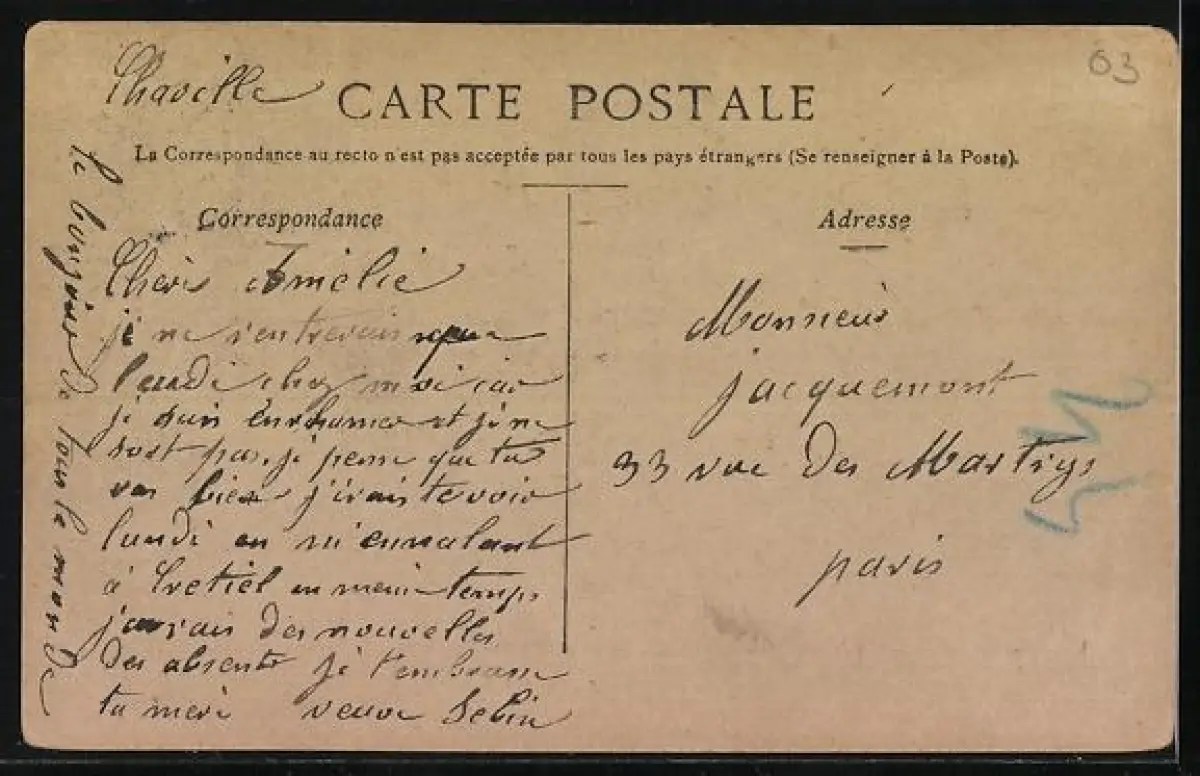 Chaville
63
CARTE POSTALE
La Correspondance au recto n'est pas acceptée par tous les pays étrangers (Se renseigner à la Poste).
Correspondance
Cheris Amelie
je ne rentrerais que
lundi chez moi car
je suis enrhumer et je ne
sort pas. je pense que tu
vas bien j'irais te voir
lundi en m'en allant
à Cretiel en meme temps
j'aurais des nouvelles
des absents je t'embrasse
ta mere veuve Sebin
le bonjour de tout le monde
Adresse
Monsieur
jacquemont
33 rue des Martyrs
paris